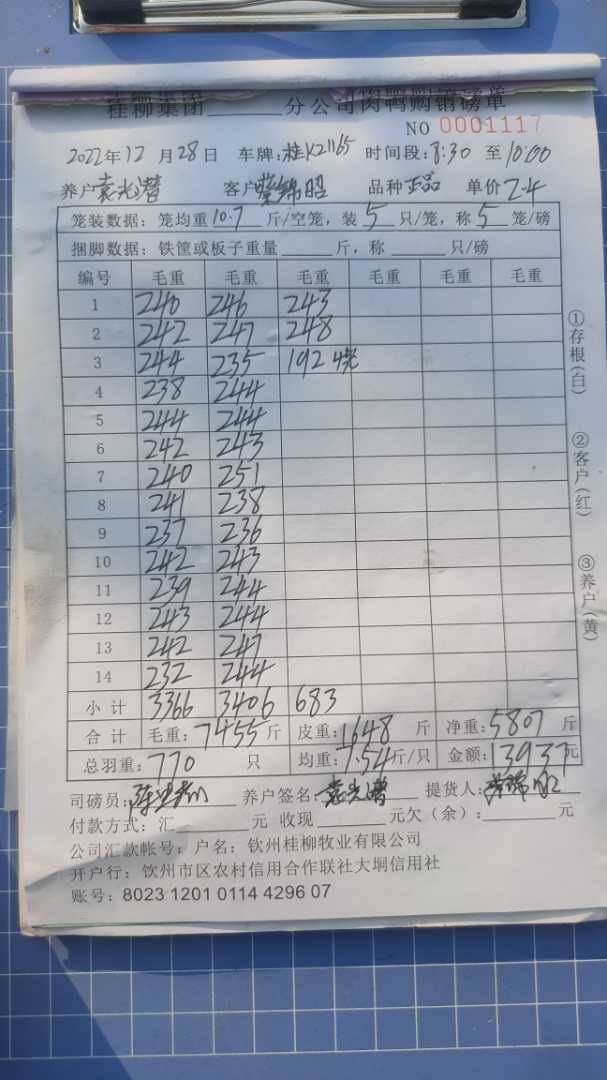 桂柳集团______分公司肉鸭购销磅单
NO 0001117
2022年12月28日 车牌:桂K21165 时间段:8:30 至10:00
养户 袁光潜 客户 蒙锦昭 品种 正品 单价 2.4
笼装数据: 笼均重10.7斤/空笼, 装5只/笼, 称5笼/磅
捆脚数据: 铁筐或板子重量______斤, 称______只/磅
编号 毛重 毛重 毛重 毛重 毛重 毛重
1 240 246 243
2 242 247 248
3 244 235 192 4笼
4 238 244
5 244 244
6 242 243
7 240 251
8 241 238
9 237 236
10 242 243
11 239 244
12 243 244
13 242 247
14 232 244
小计 3366 3406 683
合计 毛重:7455斤 皮重:1648斤 净重:5807斤
总羽重:770只 均重:7.54斤/只 金额:13937元
司磅员: 养户签名: 袁光潜 提货人: 蒙锦昭
付款方式: 汇______元 收现______元欠(余):______元
公司汇款帐号: 户名: 钦州桂柳牧业有限公司
开户行: 饮州市区农村信用合作联社大垌信用社
账号: 8023 1201 0114 4296 07
①存根(白)
②客户(红)
③养户(黄)